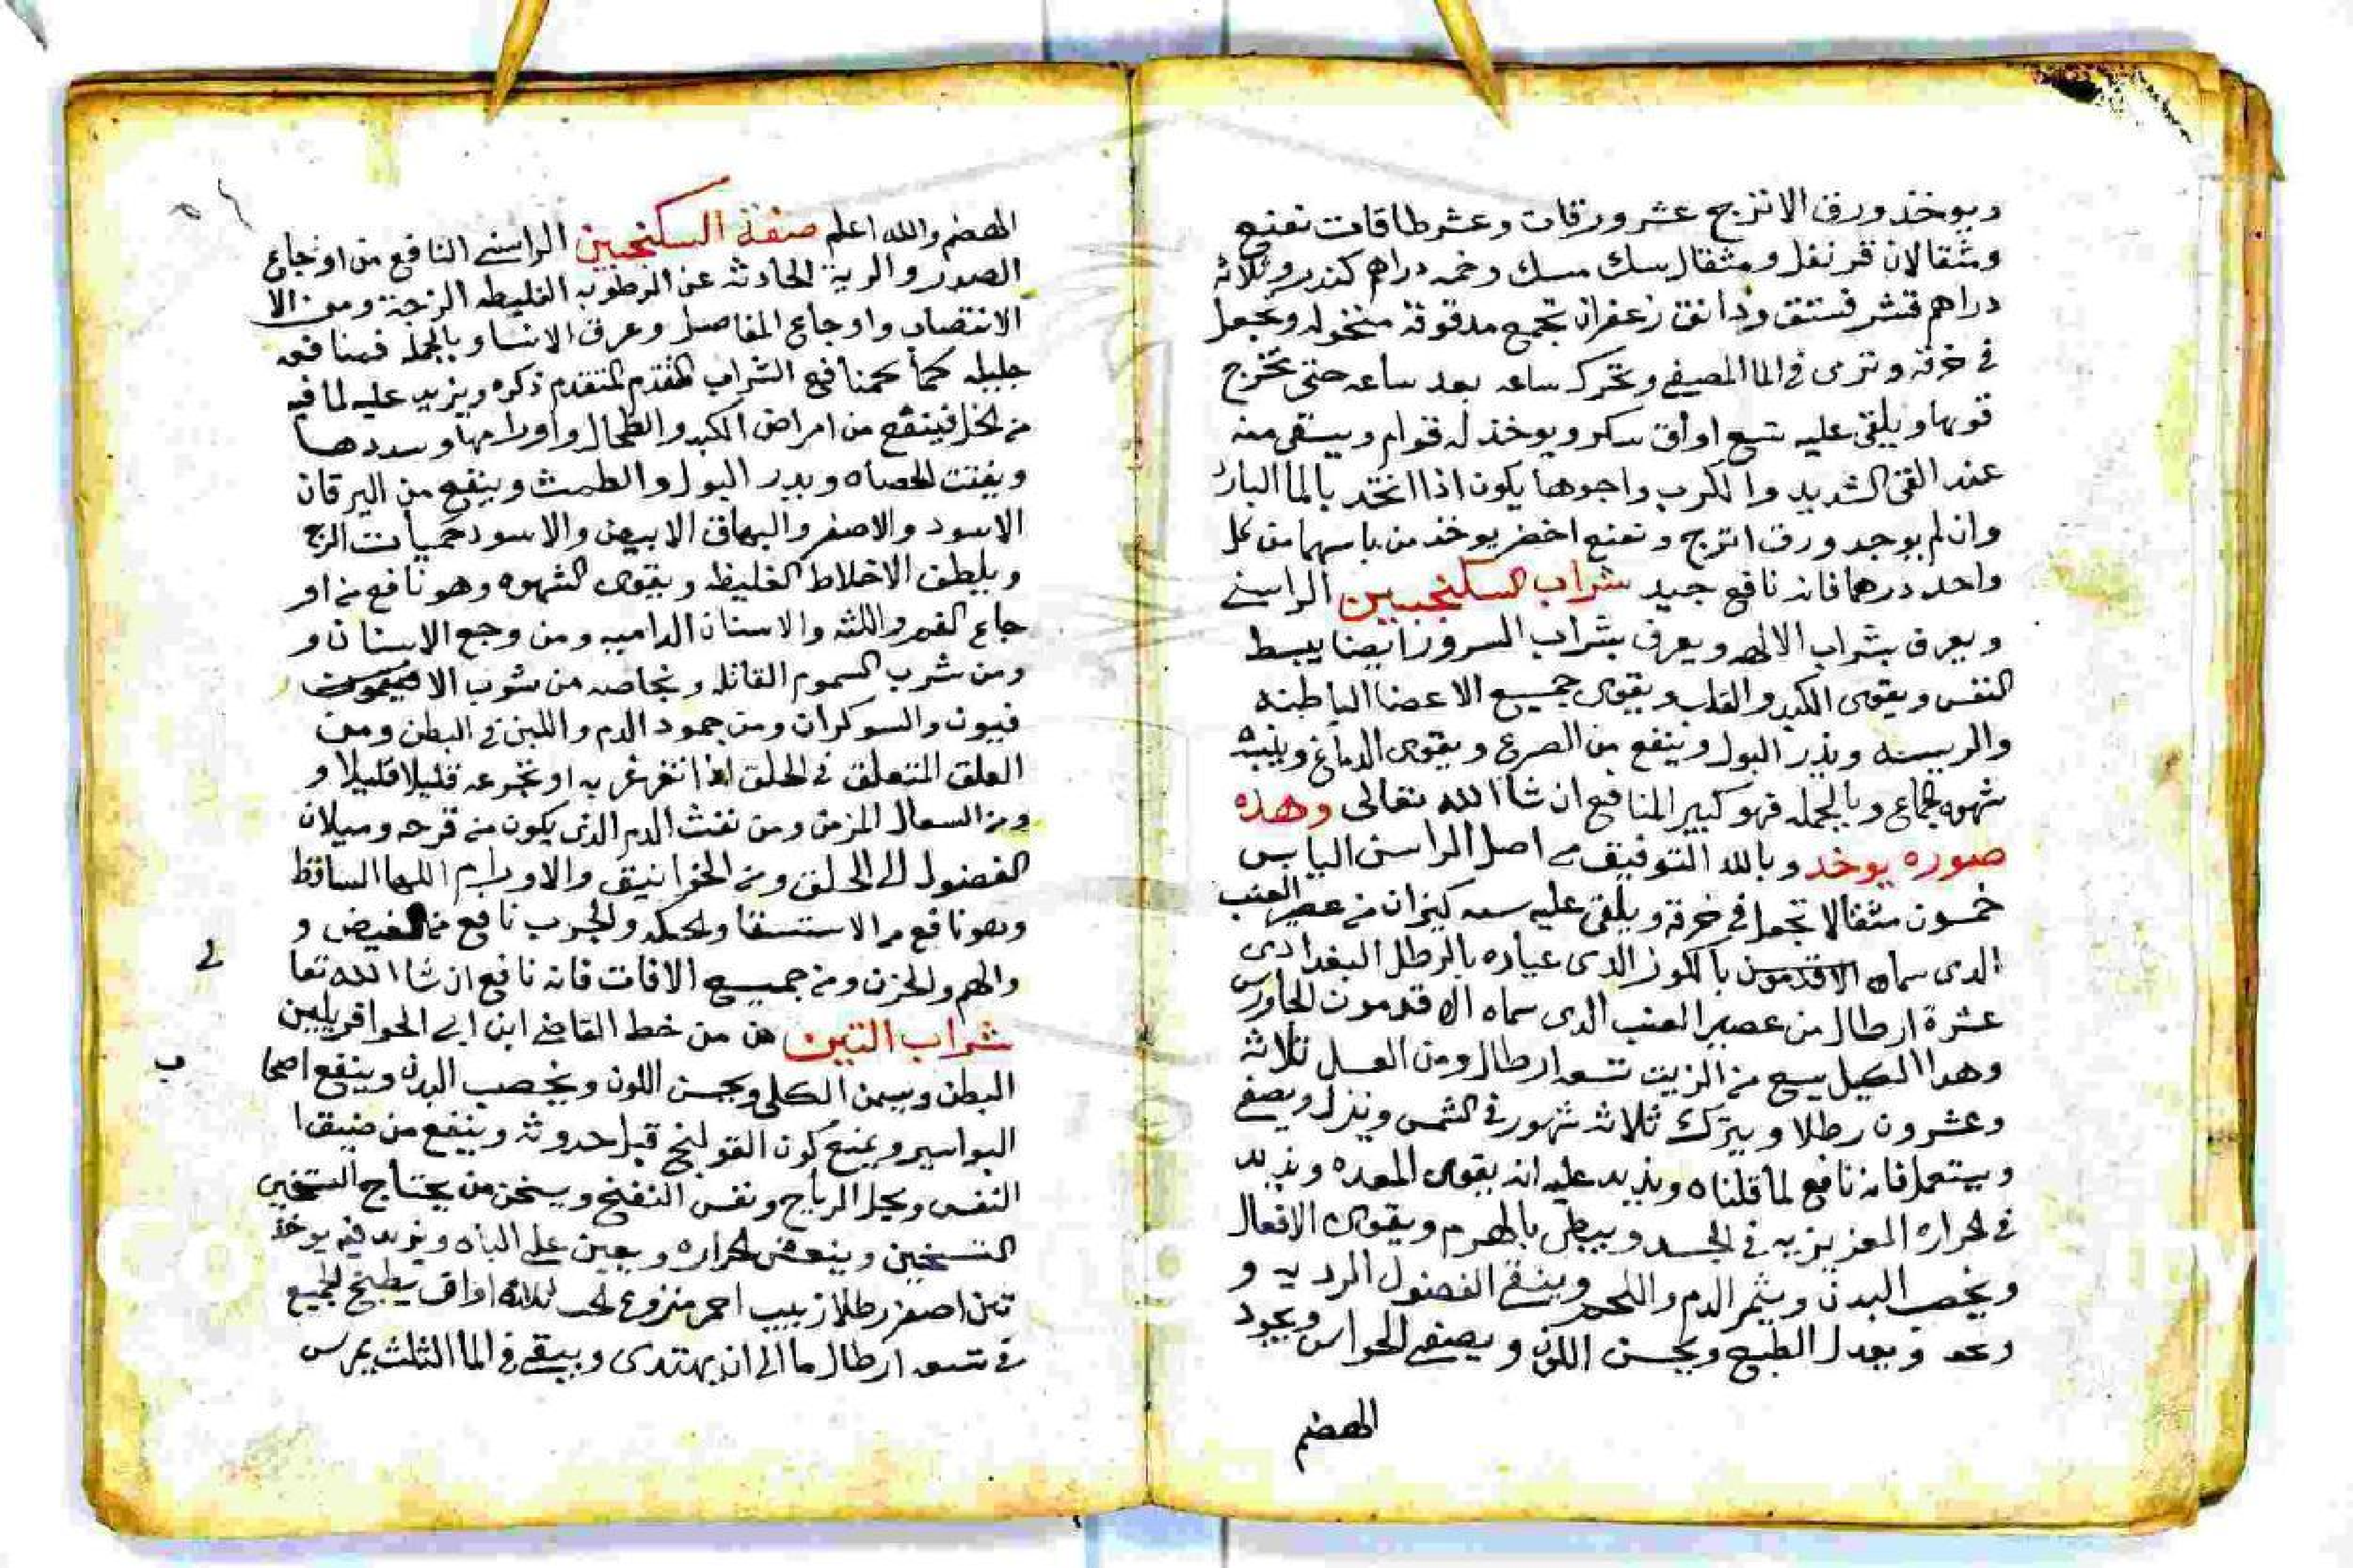 ويوخذ ورق الاترج عشر ورقات وعشر طاقات نعنع
ومثقالان قرنفل ومثقال سك مسك وخمسه دراهم كندر وثلاثة
دراهم قشر فستق ودانق زعفران تجمع مدقوقة منخوله وتجعل
في خرقة وترمى في الما المصفى وتحرك ساعه بعد ساعه حتى تخرج
قوتها ويلقى عليه سبع اواق سكر ويوخذ له قوام ويسقى منه
عند القى الشديد والكرب واجودها يكون اذا اتخذ بالما البارد
وان لم يوجد ورق اترج ونعنع اخضر يوخذ من يابسهما من كل
واحد درهما فانه نافع جيد شراب السكنجبين الراسني
ويعرف بشراب الالهه ويعرف بشراب السرور ايضا يبسط
النفس ويقوى الكبد والقلب ويقوى جميع الاعضا الباطنه
والريسه ويدر البول وينفع من الصرع ويقوى الدماغ وينبه
شهوه الجماع وبالجمله فهو كبير المنافع ان شا الله تعالى وهذه
صوره يوخذ وبالله التوفيق من اصل الراسن اليابس
خمسون مثقالا تجعل في خرقة ويلقى عليه سته كيزان من عصير العنب
الدى سماه الاقدمون بالكوز الدى عياره بالرطل البغدادى
عشرة ارطال من عصير العنب الدى سماه الاقدمون الجاورس
وهدا الكيل يسع من الزيت تسعه ارطال ومن العسل ثلاثة
وعشرون رطلا ويترك ثلاثه شهور في الشمس وينزل ويصفى
ويستعمل فانه نافع لما قلناه ويزيد عليه انه يقوى المعده ويزيد
في الحراره الغريزيه في الجسد ويبطى بالهرم ويقوى الافعال
ويخصب البدن ويثمر الدم واللحم وينقى الفضول الرديه و
ويعدل الطبع ويحسن اللون ويصفى الحواس ويجود
الهضم
الهضم والله اعلم صفة السكنجبين الراسنى النافع من اوجاع
الصدر والرية الحادثه عن الرطوبه الغليظه اللزجة ومن الا
الانتصاب واوجاع المفاصل وعرق الانسا وبالجمله فمنافعه
جليله كمنافع الشراب المتقدم ذكره ويزيد عليه لما فيه
من الخل فينفع من امراض الكبد والطحال واورامها وسددها
ويفتت الحصاه ويدر البول والطمث وينفع من اليرقان
الاسود والاصفر والبهاق الابيض والاسود حميات الربع
ويلطف الاخلاط الغليظه ويقوى الشهوه وهو نافع من او
جاع الفم واللثه والاسنان الداميه ومن وجع الاسنان و
ومن شرب السموم القاتله وبخاصه من شرب الا
فيون والسوكران ومن جمود الدم واللبن في البطن ومن
العلق المتعلق في الحلق اذا تغرغر به او تجرعه قليلا قليلا و
ومن السعال المزمن ومن نفث الدم الذى يكون من قرحه وسيلان
الفضول الى الحلق ومن الخوانيق والاورام اللها الساقط
وهو نافع من الاستسقا والحكه والجرب نافع من الغيض و
والهم والحزن ومن جميع الافات فانه نافع ان شا الله تعا
شراب التين من خط القاضى ابن ابى الحوافر يلين
البطن ويسمن الكلى ويحسن اللون ويخصب البدن وينفع اصحا
ب
البواسير ويمنع كون القولنج قبل حدوثه وينفع من ضيق ا
النفس ويحل الرياح ونفس النفخ ويسخن من يحتاج التسخين
التسخين وينعض الحراره ويعين على الباه ويزيد فيه يوخذ
تين اصفر رطل زبيب احمر منزوع العجم ثلاثة اواق يطبخ الجميع
في تسعه ارطال ما الى ان يهتدى ويبقى في الما الثلث يمرس